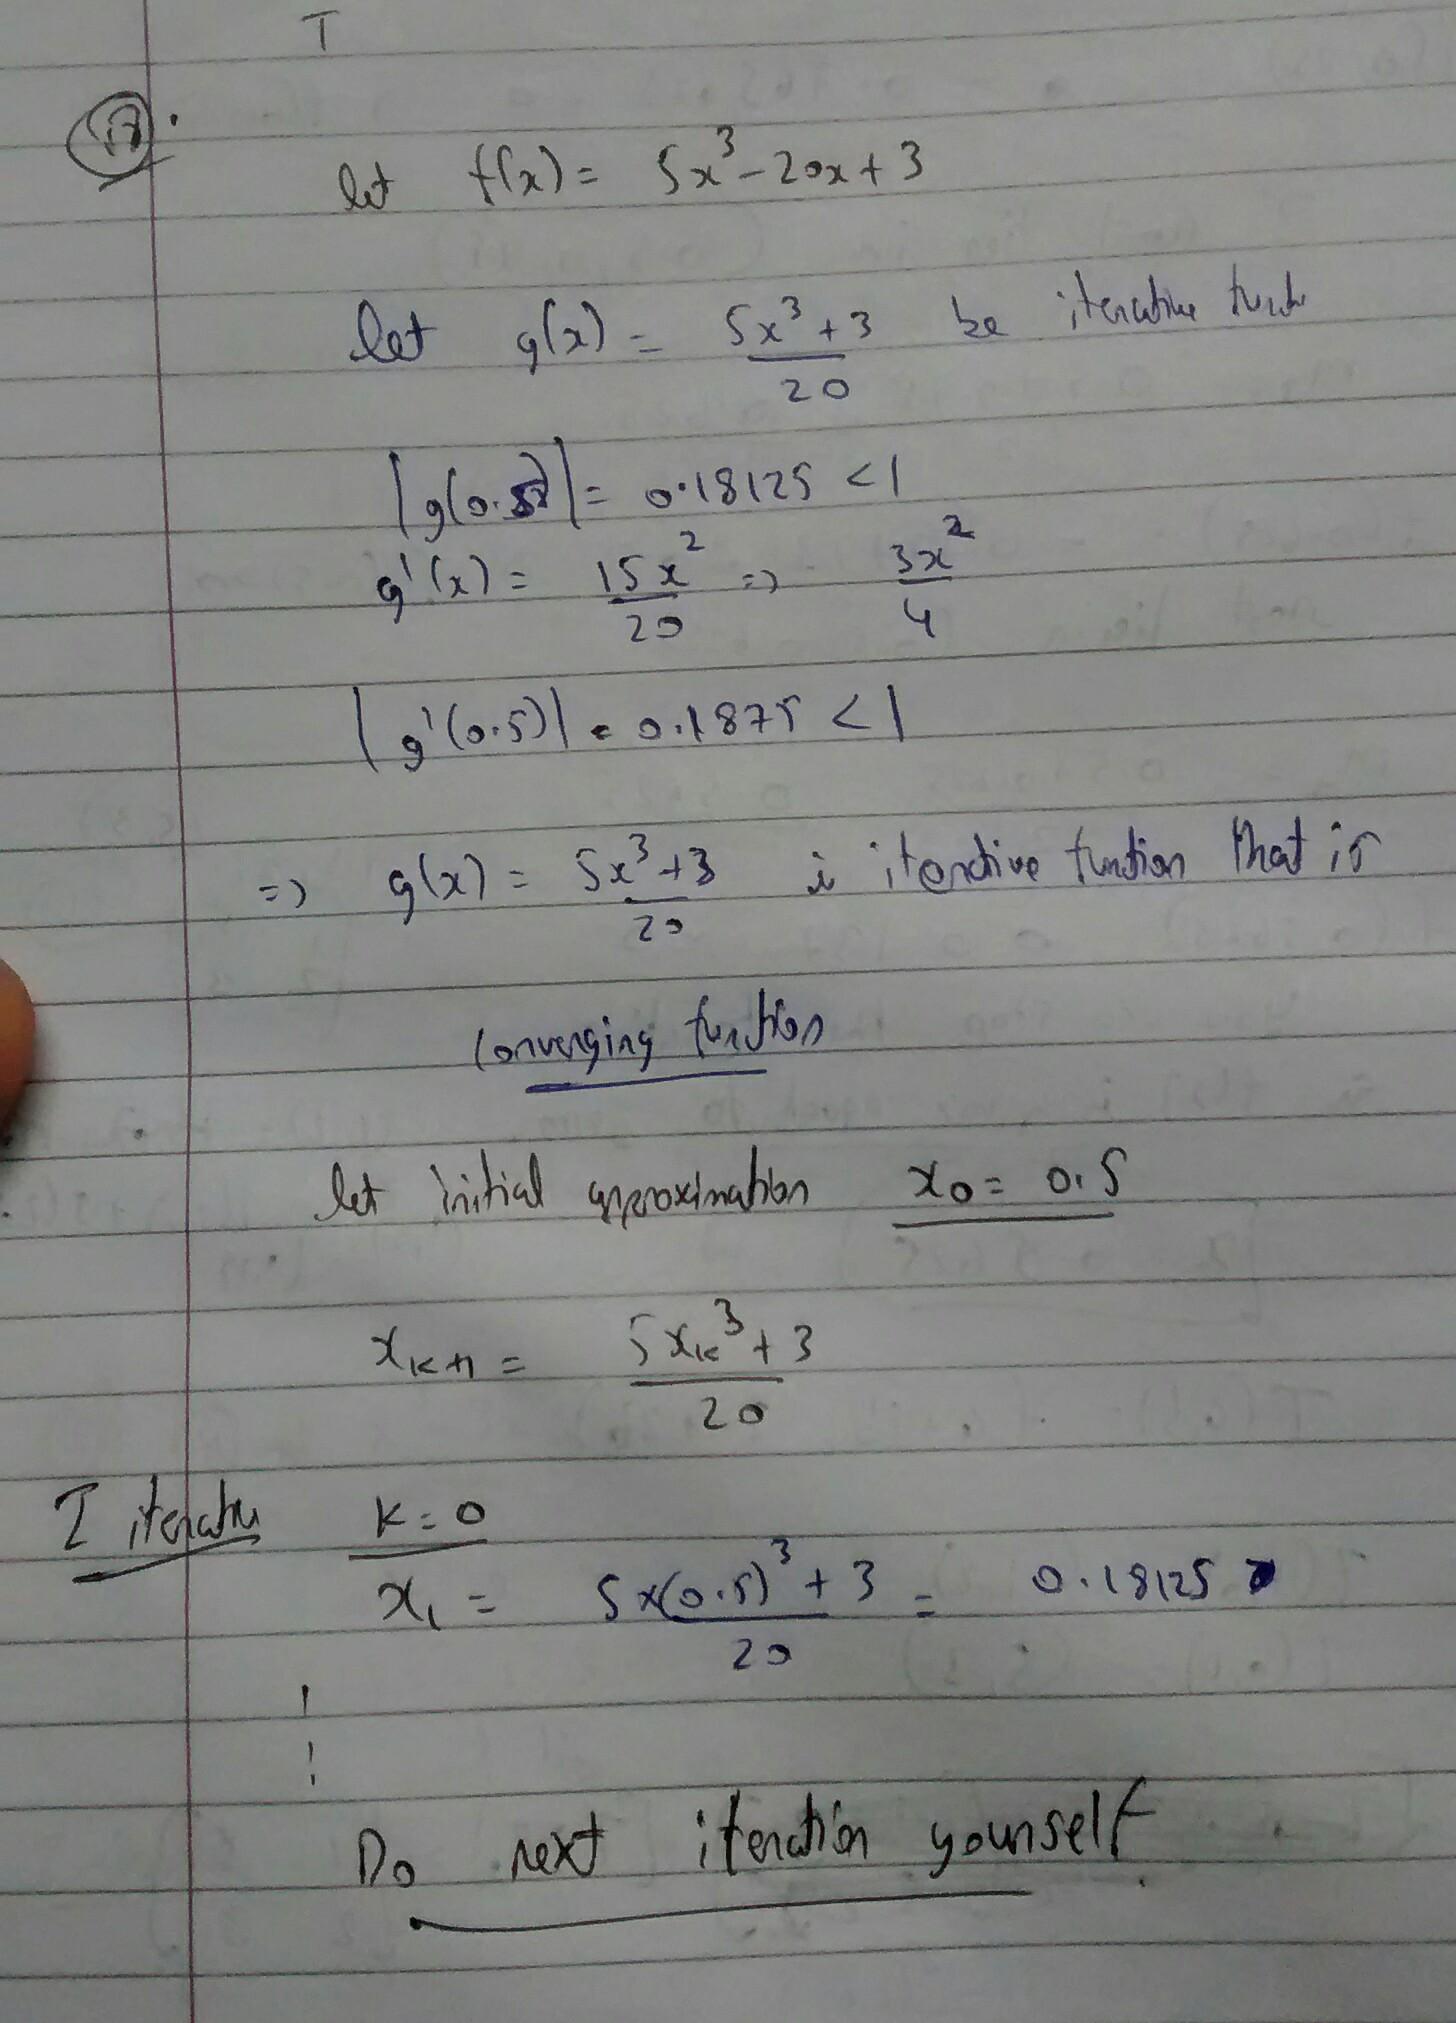 T
let f(x) = 5x³ - 20x + 3
let g(x) = 5x³ + 3 / 20 be iterative
|g(0.5)| = 0.18125 < 1
g'(x) = 15x² / 20 => 3x² / 4
|g'(0.5)| = 0.1875 < 1
=> g(x) = 5x³ + 3 / 20 is iterative function that is
converging function
let initial approximation x₀ = 0.5
xₖ₊₁ = 5xₖ³ + 3 / 20
I iteratn K = 0
x₁ = 5x(0.5)³ + 3 / 20 = 0.18125
Do next iteration yourself